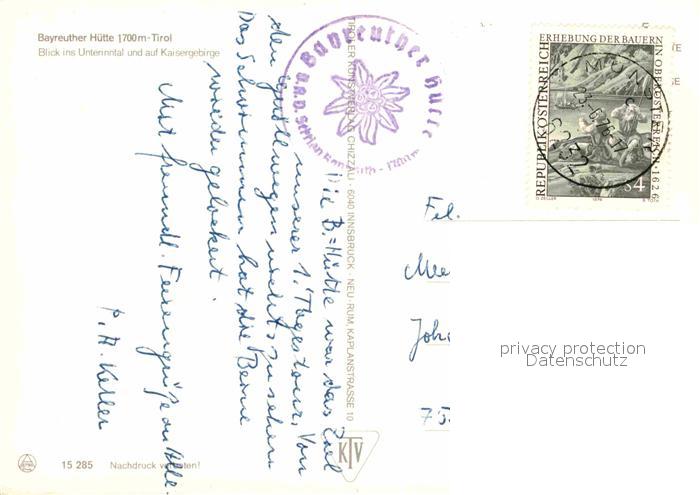 Bayreuther Hütte 1700m-Tirol
Blick ins Unterinntal und auf Kaisergebirge
Die B.-Hütte war das Ziel
unserer 1. Tagestour. Von
den Igudlwegen nichts zu sehen
Das Schwimmen hat die Beine
wieder gelockert.
Mit freundl. Feriengrüße an Alle.
P. H. Keller
TIROLER KUNSTVERLAG CHIZZALI · 6040 INNSBRUCK - NEU-RUM, KAPLANSTRASSE 10
Bayreuther Hütte
1700m
REPUBLIK ÖSTERREICH
ERHEBUNG DER BAUERN
IN OBERÖSTERREICH 1626
S4
O. ZEILLER
1976
R. TOTH
Joh
75
privacy protection
Datenschutz
KTV
15 285
Nachdruck verboten!